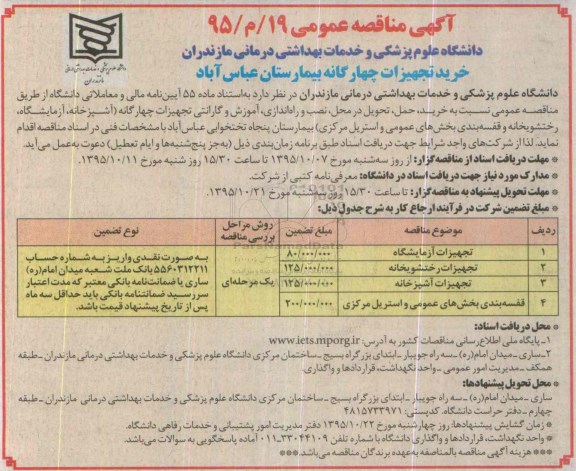 آگهی مناقصه عمومی ۱۹/م/۹۵
دانشگاه علوم پزشکی و خدمات بهداشتی درمانی مازندران
خرید تجهیزات چهارگانه بیمارستان عباس آباد
دانشگاه علوم پزشکی و خدمات بهداشتی درمانی مازندران در نظر دارد به‌استناد ماده ۵۵ آیین‌نامه مالی و معاملاتی دانشگاه از طریق
مناقصه عمومی نسبت به خرید، حمل، تحویل در محل، نصب و راه‌اندازی، آموزش و گارانتی تجهیزات چهارگانه (آشپزخانه، آزمایشگاه،
رختشویخانه و قفسه‌بندی بخش‌های عمومی و استریل مرکزی) بیمارستان پنجاه تختخوابی عباس‌آباد با مشخصات فنی در اسناد مناقصه اقدام
نماید. لذا از شرکت‌های واجد شرایط جهت دریافت اسناد طبق برنامه زمان‌بندی ذیل (به‌جز پنج‌شنبه‌ها و ایام تعطیل) دعوت به‌عمل می‌آید.
* مهلت دریافت اسناد از مناقصه‌گزار: از روز سه‌شنبه مورخ ۱۳۹۵/۱۰/۰۷ تا ساعت ۱۵/۳۰ روز شنبه مورخ ۱۳۹۵/۱۰/۱۱.
* مدارک مورد نیاز جهت دریافت اسناد در دانشگاه: معرفی‌نامه کتبی از شرکت.
* مهلت تحویل پیشنهاد به مناقصه‌گزار: تا ساعت ۱۵/۳۰ روز سه‌شنبه مورخ ۱۳۹۵/۱۰/۲۱.
* مبلغ تضمین شرکت در فرآیند ارجاع کار به شرح جدول ذیل:
ردیف موضوع مناقصه مبلغ تضمین روش مراحل بررسی مناقصه نوع تضمین
۱ تجهیزات آزمایشگاه ۸۰/۰۰۰/۰۰۰
۲ تجهیزات رختشویخانه ۱۲۵/۰۰۰/۰۰۰
۳ تجهیزات آشپزخانه ۱۲۵/۰۰۰/۰۰۰
۴ قفسه‌بندی بخش‌های عمومی و استریل مرکزی ۲۰۰/۰۰۰/۰۰۰
یک مرحله‌ای
به صورت نقدی واریز به شماره حساب
۵۵۶۰۳۱۲۲۱۱ بانک ملت شعبه میدان امام(ره)
ساری یا ضمانت‌نامه بانکی معتبر که مدت اعتبار
سررسید ضمانتنامه بانکی باید حداقل سه ماه
پس از تاریخ پیشنهاد قیمت باشد.
* محل دریافت اسناد:
۱- پایگاه ملی اطلاع‌رسانی مناقصات کشور به آدرس: www.iets.mporg.ir
۲- ساری- میدان امام(ره) – سه راه جویبار – ابتدای بزرگراه بسیج – ساختمان مرکزی دانشگاه علوم پزشکی و خدمات بهداشتی درمانی مازندران- طبقه
همکف- مدیریت امور عمومی – واحد نگهداشت، قراردادها و واگذاری.
* محل تحویل پیشنهادها:
ساری – میدان امام(ره) – سه راه جویبار – ابتدای بزرگراه بسیج – ساختمان مرکزی دانشگاه علوم پزشکی و خدمات بهداشتی درمانی مازندران – طبقه
چهارم – دفتر حراست دانشگاه. کدپستی: ۴۸۱۵۷۳۳۹۷۱
* زمان گشایش پیشنهادها: روز چهارشنبه مورخ ۱۳۹۵/۱۰/۲۲ دفتر مدیریت امور پشتیبانی و خدمات رفاهی دانشگاه.
* واحد نگهداشت، قراردادها و واگذاری دانشگاه با شماره تلفن ۳۳۰۴۴۱۰۹-۰۱۱ آماده پاسخگویی به سوالات می‌باشد.
*** هزینه آگهی مناقصه بالمناصفه به‌عهده برندگان مناقصه می‌باشد.***